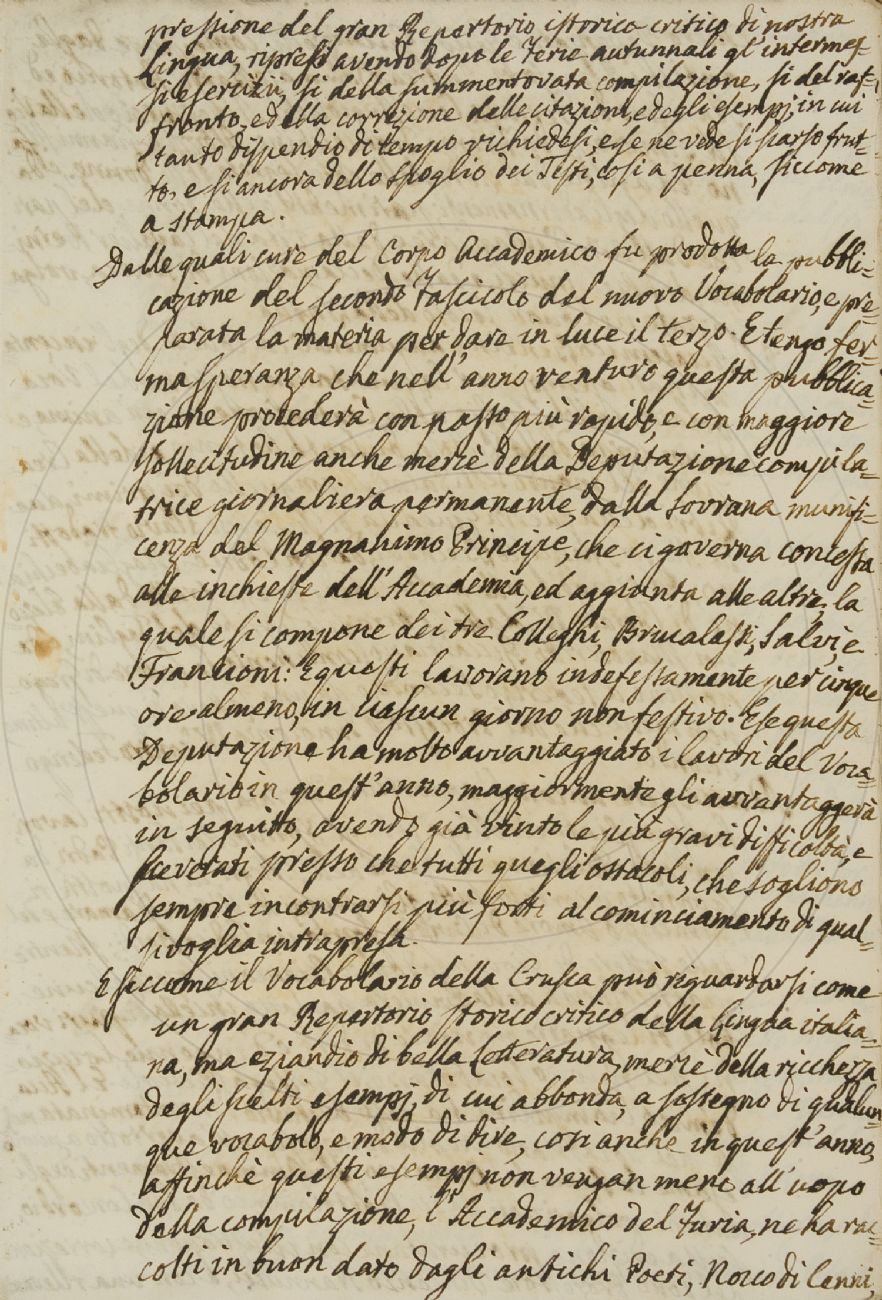 pressione del gran Repertorio istorico critico di nostra
Lingua, ripresi avendo dopo le Ferie autunnali gl'intermes=
si esercizii, sì della summentovata compilazione, sì del raf=
fronto, e della correzione delle citazioni, e degli esempj, in cui
tanto dispendio di tempo richiedesi, e se ne vede sì scarso frut=
to, e sì ancora dello spoglio dei Testi, così a penna, siccome
a stampa.
Dalle quali cure del Corpo Accademico fu prodotta la pubbli=
cazione del secondo Fascicolo del nuovo Vocabolario, e pre=
parata la materia per dare in luce il terzo. E tengo fer=
ma speranza che nell'anno venturo questa pubblica=
zione procederà con passo più rapido, e con maggiore
sollecitudine anche mercè della Deputazione compila=
trice giornaliera permanente, dalla Sovrana munifi=
cenza del Magnanimo Principe, che ci governa concessa
alle inchieste dell'Accademia, ed aggiunta alle altre, la
quale si compone dei tre Colleghi, Brucalassi, Salvi, e
Francioni: E questi lavorano indefessamente per cinque
ore almeno, in ciascun giorno non festivo. E se questa
Deputazione ha molto avvantaggiato i lavori del Voca=
bolario in quest'anno, maggiormente gli avvantaggerà
in seguito, avendo già vinto le più gravi difficoltà, e
sceverati presso che tutti quegli ostacoli, che sogliono
sempre incontrarsi più forti al cominciamento di qual=
sivoglia intrapresa.
E siccome il Vocabolario della Crusca può riguardarsi come
un gran Repertorio storico critico della Lingua italia=
na, ma eziandio di bella Letteratura, mercè della ricchezza
degli scelti esempj, di cui abbonda, a sostegno di qualun=
que vocabolo, e modo di dire, così anche in quest'anno,
affinchè questi esempj non vengan meno all'uopo
della compilazione, l'Accademico del Furia, ne ha rac=
colti in buon dato dagli antichi Poeti, Nocco di Cenni